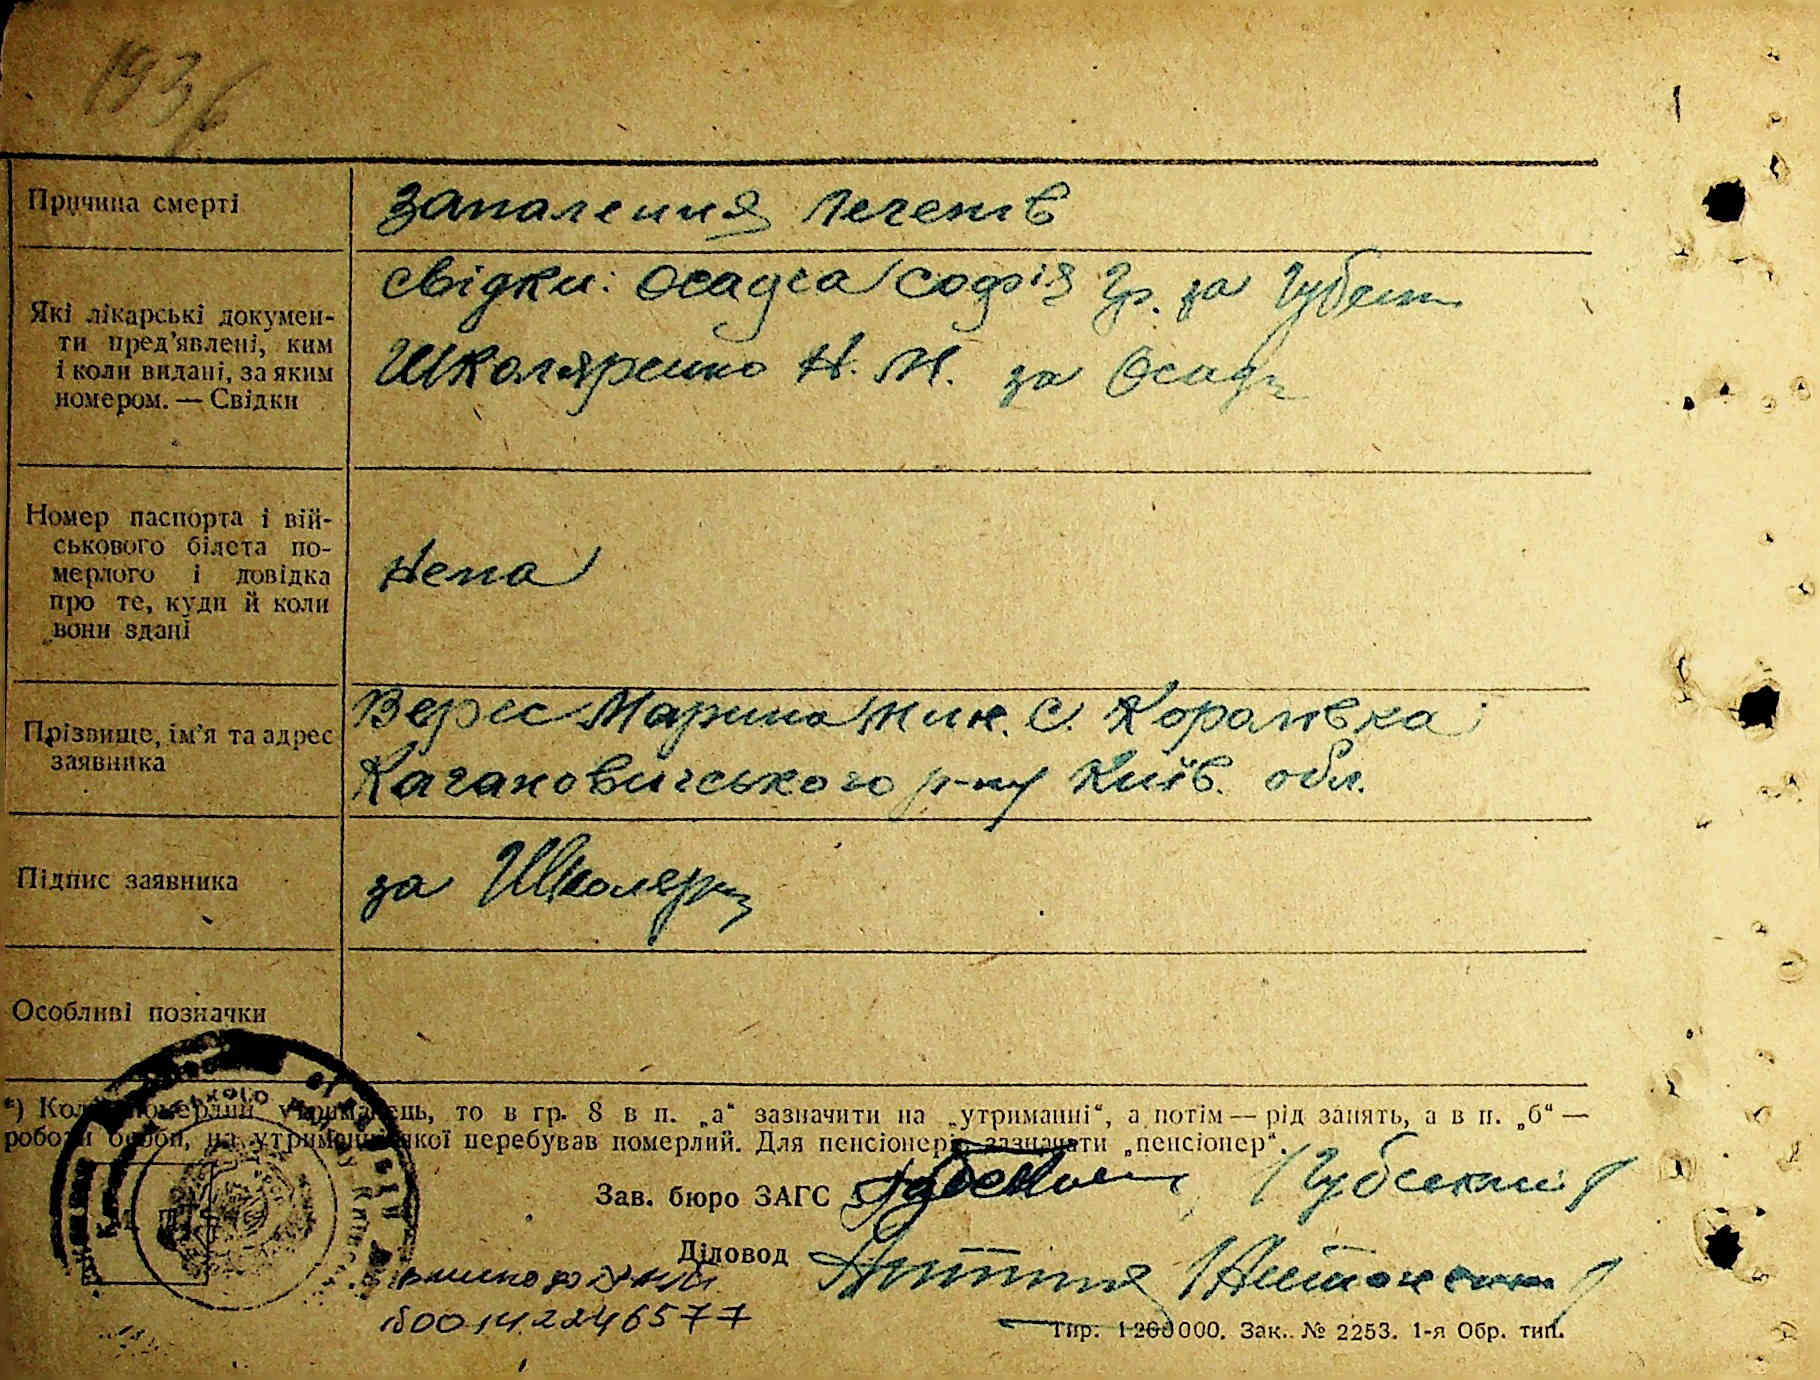 1936
Причина смерті
Запалення легенів
Які лікарські докумен-
ти пред'явлені, ким
і коли видані, за яким
номером. — Свідки
Свідки: Осадча Софія Гр. за Губен
Школяренко Н. М. за Осадч
Номер паспорта і вій-
ськового білета по-
мерлого і довідка
про те, куди й коли
вони здані
Нема
Прізвище, ім'я та адрес
заявника
Верес Марина с.
Кагановичського р-ну Київ. обл.
Підпис заявника
за Школяр
Особливі позначки
*) Коли померлий утриманець, то в гр. 8 в п. „а“ зазначити на „утриманні“, а потім — рід занять, а в п. „б“ —
роботи особи, на утриманні якої перебував померлий. Для пенсіонерів зазначати „пенсіонер“.
Зав. бюро ЗАГС
Діловод
00142246577
Тир. 1200000. Зак. № 2253. 1-я Обр. тип.